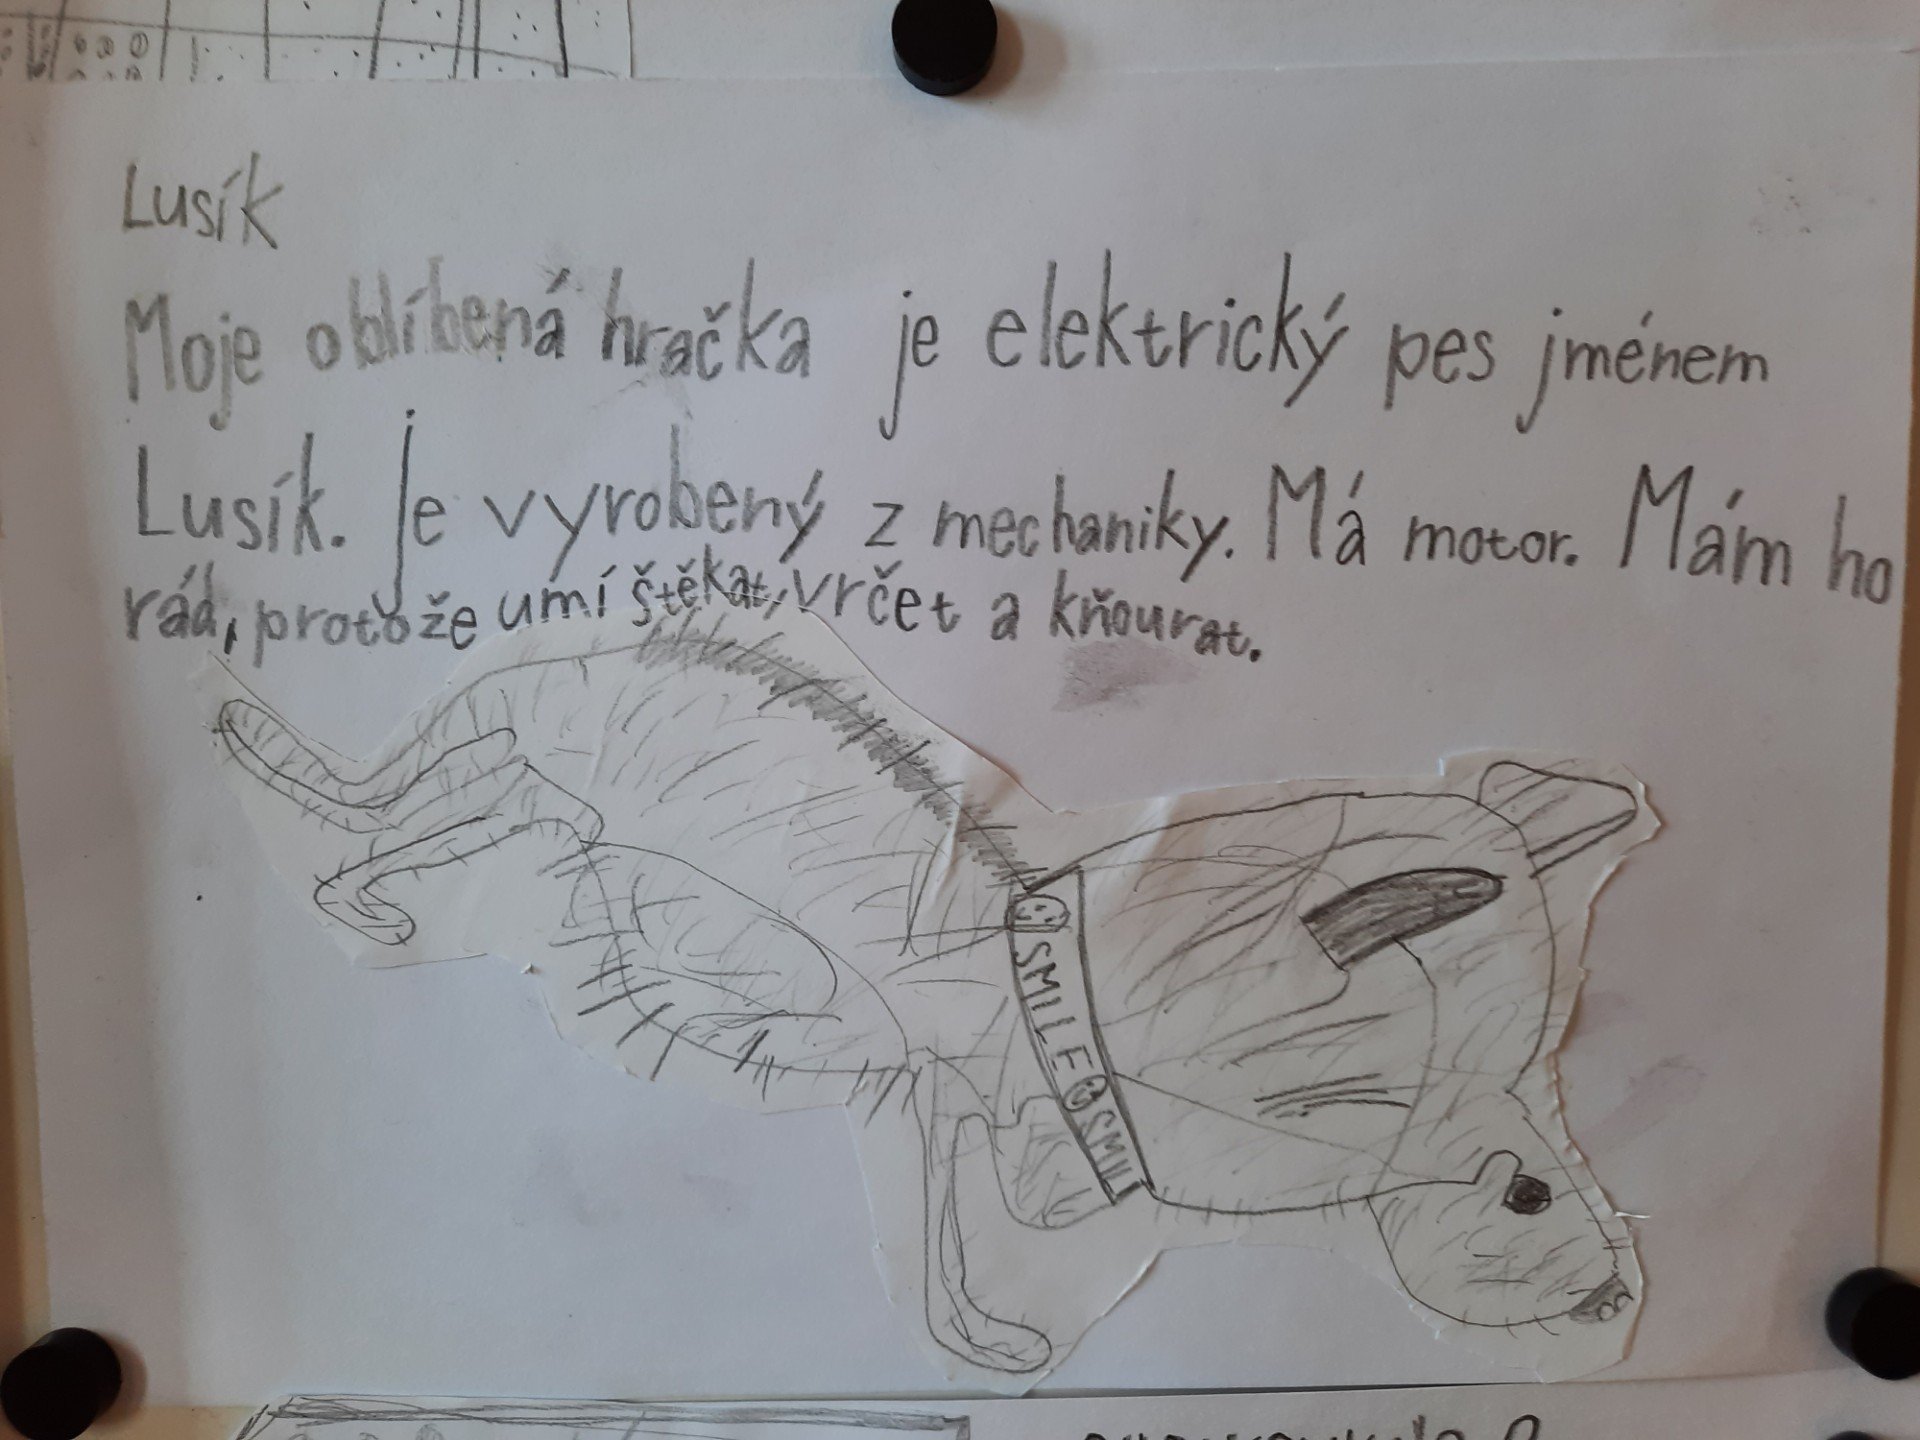 Lusík
Moje oblíbená hračka je elektrický pes jménem
Lusík. Je vyrobený z mechaniky. Má motor. Mám ho
rád, protože umí štěkat, vrčet a kňourat.
SMILE SMIL